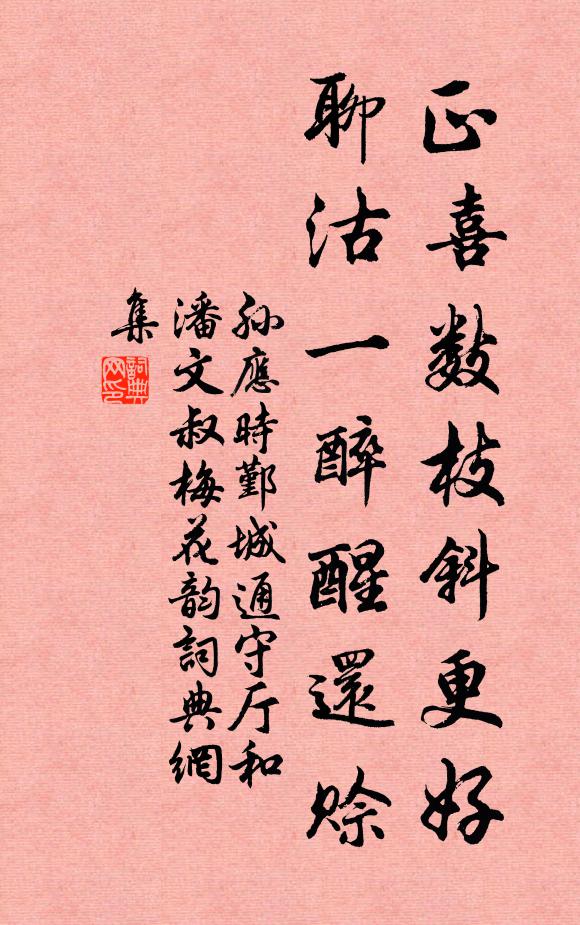 正喜数枝斜更好
聊沽一醉醒還賒
孙應時鄞城通守厅和
潘文叔梅花韵詞典網
集
詞典
网印